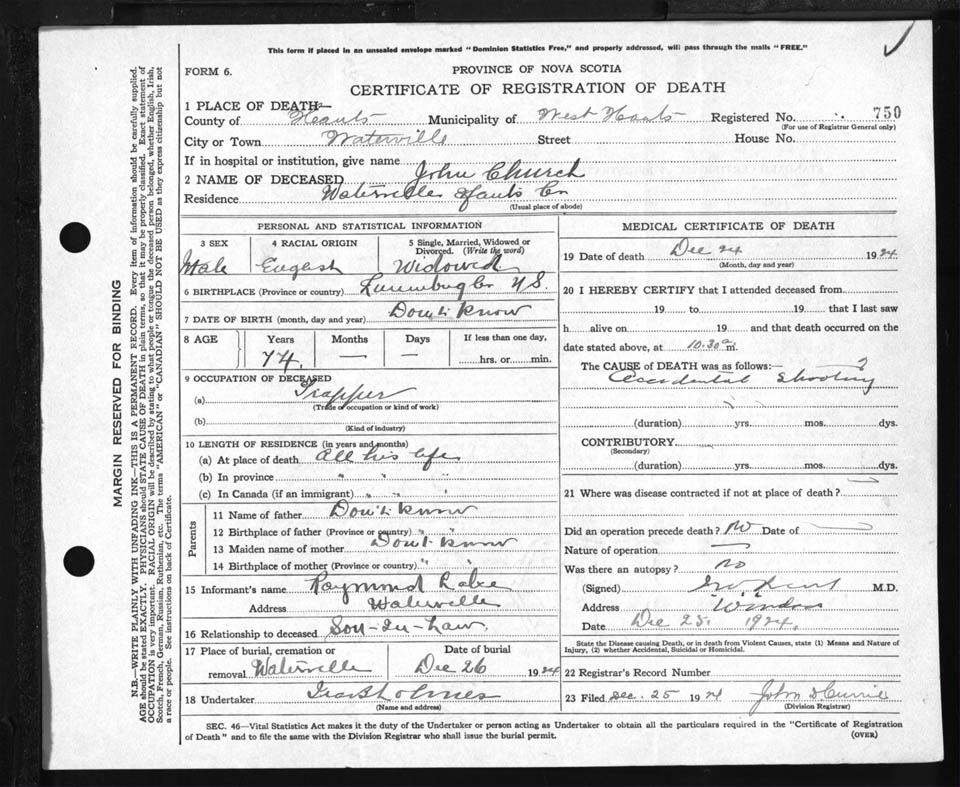 This form if placed in an unsealed envelope marked "Dominion Statistics Free," and properly addressed, will pass through the mails "FREE."
FORM 6.
PROVINCE OF NOVA SCOTIA
CERTIFICATE OF REGISTRATION OF DEATH
1 PLACE OF DEATH—
County of Heants Municipality of West Hants Registered No. 750
(For use of Registrar General only)
City or Town Waterville Street House No.
If in hospital or institution, give name
2 NAME OF DECEASED John Church
Residence Waterville Hants Co
(Usual place of abode)
PERSONAL AND STATISTICAL INFORMATION
3 SEX 4 RACIAL ORIGIN 5 Single, Married, Widowed or Divorced. (Write the word)
Male English Widowed
6 BIRTHPLACE (Province or country) Lunenburg Co N S.
7 DATE OF BIRTH (month, day and year) Don't Know
8 AGE Years Months Days If less than one day,
74 — — hrs. or min.
9 OCCUPATION OF DECEASED
(a) Trapper
(Trade or occupation or kind of work)
(b)
(Kind of industry)
10 LENGTH OF RESIDENCE (in years and months)
(a) At place of death All his life
(b) In province " " "
(c) In Canada (if an immigrant) " " "
Parents
11 Name of father Don't know
12 Birthplace of father (Province or country) " "
13 Maiden name of mother Don't know
14 Birthplace of mother (Province or country) " "
15 Informant's name Raymond
Address Waterville
16 Relationship to deceased Son-In-Law.
17 Place of burial, cremation or removal Date of burial
Waterville Dec 26 1924
18 Undertaker Holmes
(Name and address)
MEDICAL CERTIFICATE OF DEATH
19 Date of death Dec 24 1924
(Month, day and year)
20 I HEREBY CERTIFY that I attended deceased from
19 to 19 that I last saw
h alive on 19 and that death occurred on the
date stated above, at 10.30 a m.
The CAUSE of DEATH was as follows:— ?
Accidental Shooting
(duration) yrs. mos. dys.
CONTRIBUTORY
(Secondary)
(duration) yrs. mos. dys.
21 Where was disease contracted if not at place of death?
Did an operation precede death? No Date of
Nature of operation —
Was there an autopsy? no
(Signed) M.D.
Address Windsor
Date Dec 25. 1924.
State the Disease causing Death, or in death from Violent Causes, state (1) Means and Nature of Injury, (2) whether Accidental, Suicidal or Homicidal.
22 Registrar's Record Number
23 Filed Dec. 25 1924 John
(Division Registrar)
SEC. 46—Vital Statistics Act makes it the duty of the Undertaker or person acting as Undertaker to obtain all the particulars required in the "Certificate of Registration
of Death" and to file the same with the Division Registrar who shall issue the burial permit.
(OVER)
MARGIN RESERVED FOR BINDING
N.B.—WRITE PLAINLY WITH UNFADING INK—THIS IS A PERMANENT RECORD. Every item of information should be carefully supplied.
AGE should be stated EXACTLY. PHYSICIANS should STATE CAUSE OF DEATH in plain terms, so that it may be properly classified. Exact statement of
OCCUPATION is very important. RACIAL ORIGIN will be described by stating to what people or tongue the deceased person belonged, whether English, Irish,
Scotch, French, German, Russian, Ruthenian, etc. The terms "AMERICAN" or "CANADIAN" SHOULD NOT BE USED as they express citizenship but not
a race or people. See instructions on back of Certificate.